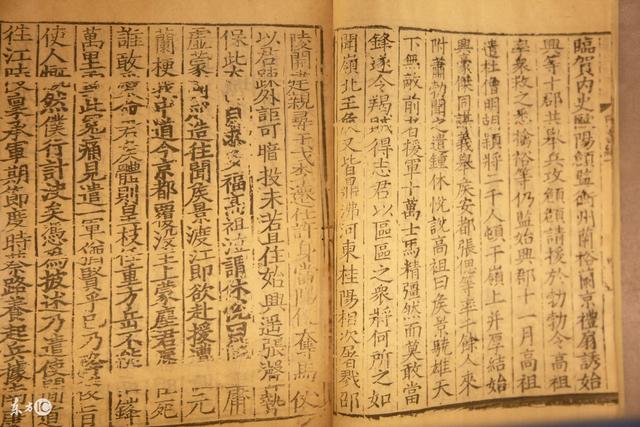 臨賀內史歐陽頠監衡州蘭裕蘭京禮扇誘始
興等十郡共舉兵攻頠頠請援於勃勃令高祖
率衆救之悉擒裕等仍監始興郡十一月高祖
遣杜僧明胡穎將二千人頓于嶺上并厚結始
興豪傑同謀義舉侯安都張偲等率千餘人來
附蕭勃聞之遣鍾休悅說高祖曰侯景驍雄天
下無敵前者援軍十萬士馬精彊然而莫敢當
鋒遂令羯賊得志君以區區之衆將何所之如
聞嶺北王侯又皆鼎沸河東桂陽相次屠戮邵
陵開建親尋干戈李遷仕許身當陽便奪馬仗
以君疎外詎可暗投未若且住始興遙張聲勢
保此太自求多福高祖泣謂休悅曰庸
虛蒙國成造往聞侯景渡江即欲赴援遭元
蘭梗我中道今京都覆沒主上蒙塵君死
誰敢愛命君侯體則皇枝任重方岳不能鋒
萬里雪此冤痛見遣一軍猶賢乎已乃旨
使人慨然僕行計決矣憑為披述乃遣使間道
往江陵稟承軍期節度時蔡路養起兵據南
東方IC